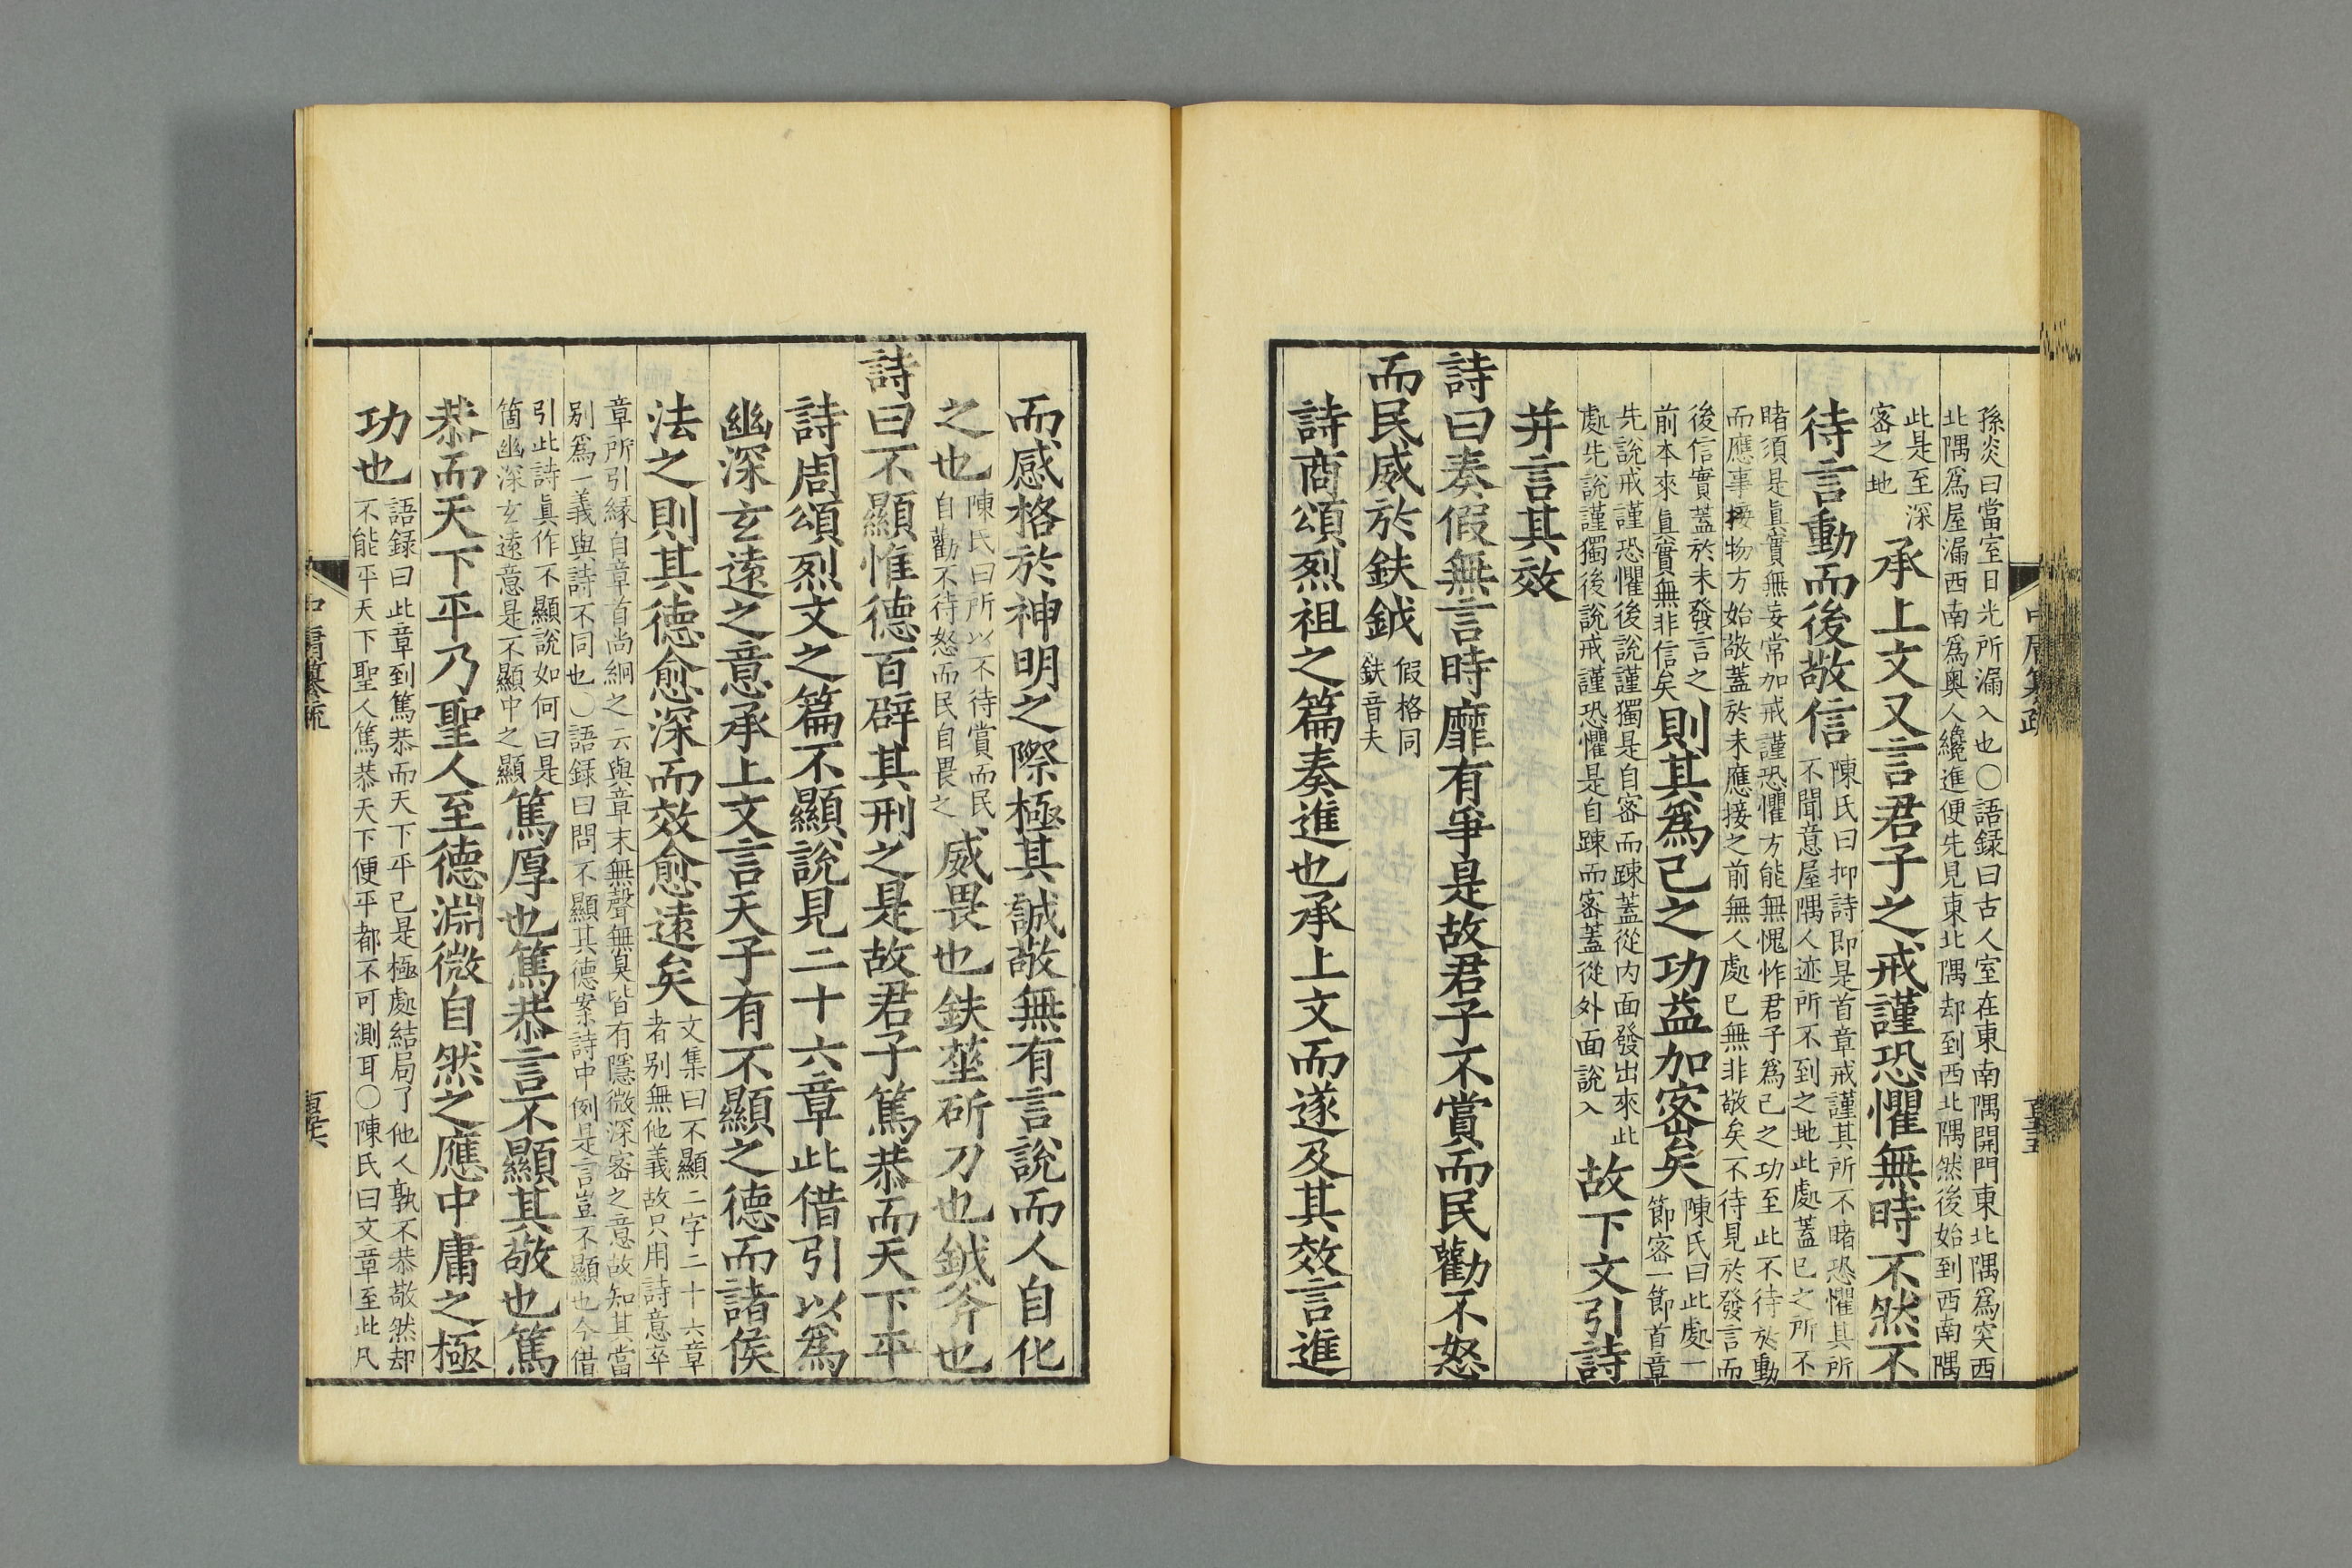 孫炎曰當室日光所漏入也○語録曰古人室在東南隅開門東北隅爲突西
北隅爲屋漏西南爲奥人纔進便先見東北隅却到西北隅然後始到西南隅
此是至深
宻之地
承上文又言君子之戒謹恐懼無時不然不
待言動而後敬信
陳氏曰抑詩即是首章戒謹其所不睹恐懼其所
不聞意屋隅人迹所不到之地此處蓋已之所不
睹須是眞實無妄常加戒謹恐懼方能無愧怍君子爲己之功至此不待於動
而應事接物方始敬蓋於未應接之前無人處已無非敬矣不待見於發言而
後信實蓋於未發言之
前本來眞實無非信矣
則其爲己之功益加宻矣
陳氏曰此處一
節宻一節首章
先說戒謹恐懼後說謹獨是自宻而踈蓋從内面發出來此
處先說謹獨後說戒謹恐懼是自踈而宻蓋從外面說入
故下文引詩
并言其效
詩曰奏假無言時靡有爭是故君子不賞而民勸不怒
而民威於鈇鉞
假格同
鈇音夫
詩商頌烈祖之篇奏進也承上文而遂及其效言進
而感格於神明之際極其誠敬無有言說而人自化
之也
陳氏曰所以不待賞而民
自勸不待怒而民自畏之
威畏也鈇莝斫刀也鉞斧也
詩曰不顯惟德百辟其刑之是故君子篤恭而天下平
詩周頌烈文之篇不顯說見二十六章此借引以爲
幽深玄遠之意承上文言天子有不顯之德而諸侯
法之則其德愈深而效愈遠矣
文集曰不顯二字二十六章
者别無他義故只用詩意卒
章所引縁自章首尚絅之云與章末無聲無臭皆有隱微深宻之意故知其當
别爲一義與詩不同也○語録曰問不顯其德案詩中例是言豈不顯也今借
引此詩眞作不顯說如何曰是
箇幽深玄遠意是不顯中之顯
篤厚也篤恭言不顯其敬也篤
恭而天下平乃聖人至德淵微自然之應中庸之極
功也
語録曰此章到篤恭而天下平已是極處結局了他人孰不恭敬然却
不能平天下聖人篤恭天下便平都不可測耳○陳氏曰文章至此凡
中庸纂疏